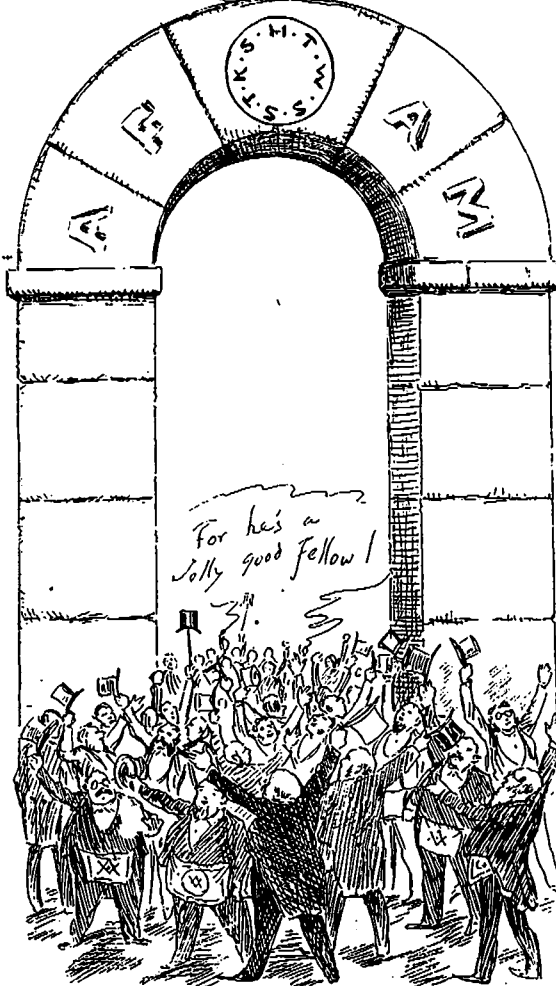 A F
H·T·W·S·S·T·K·S
A M
For he's a
Jolly good Fellow !